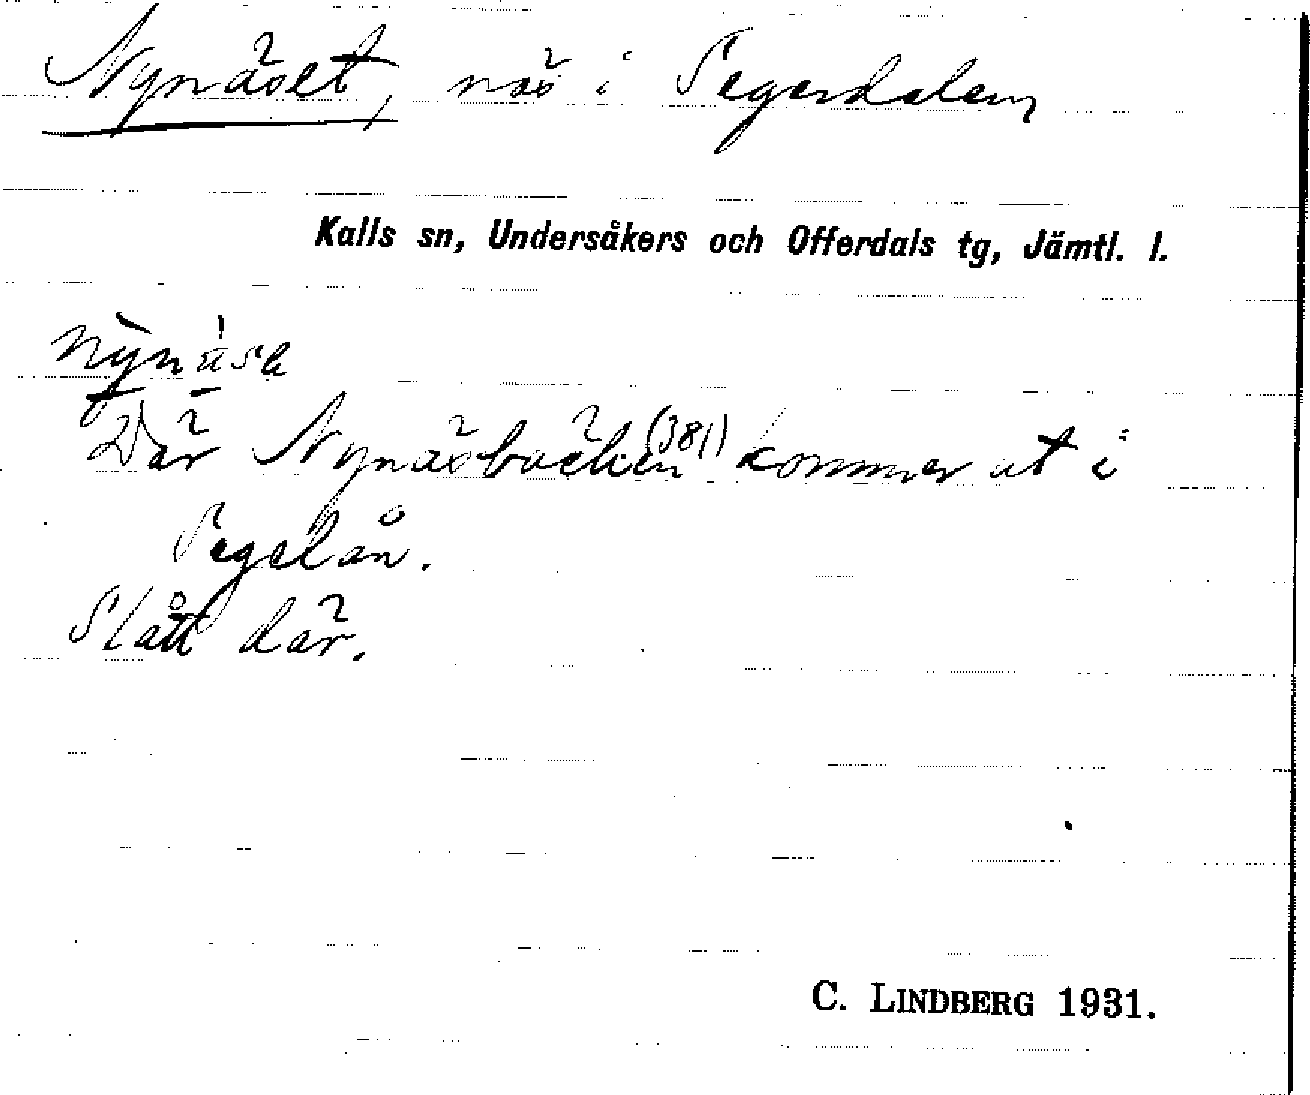 Nynäset, näs i Segerdalen
Kalls sn, Undersåkers och Offerdals tg, Jämtl. l.
nỳnäse
Där Nynäsbäcken (381) kommer ut i
Segelån.
Slått där.
C. LINDBERG 1931.